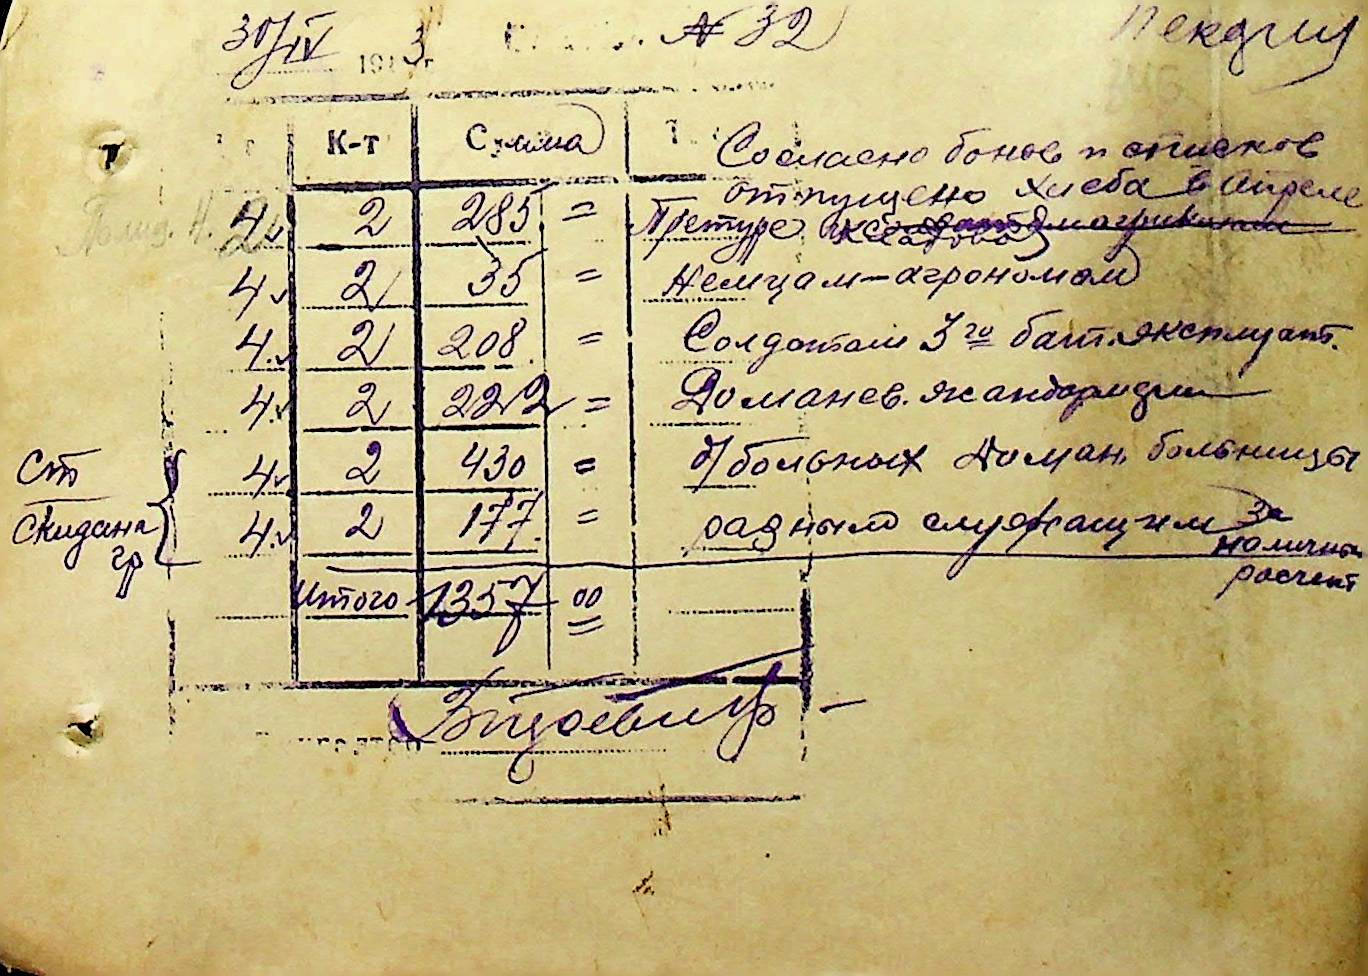 30/IV 1943 г. № 32 Пекария
К-т Сумма
Согласно бонов и списков
отпущено хлеба в апреле
4. 2 285 = Претуре
4. 2 35 = Немцам-агрономам
4. 2 208 = Солдатам 3го бат. эксплуат.
4. 2 222 = Доманев. жандармерии
4. 2 430 = д/больных Доман. больницы
4. 2 177 = разным служащим за
наличный
расчет
Скидана
гр
Итого 1357 00